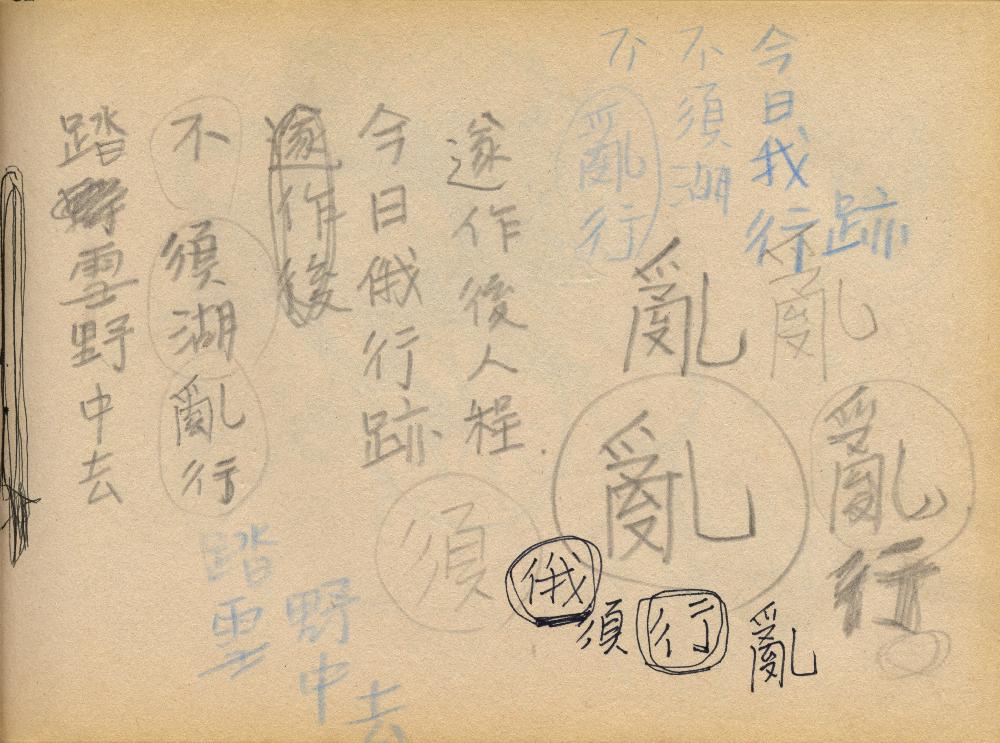 踏雪野中去
不須湖亂行
遂作後
今日俄行跡
遂作後人程.
不亂行
不須湖
今日我行
跡
亂
亂
亂
亂行
須
踏雪
野中
去
俄須行亂